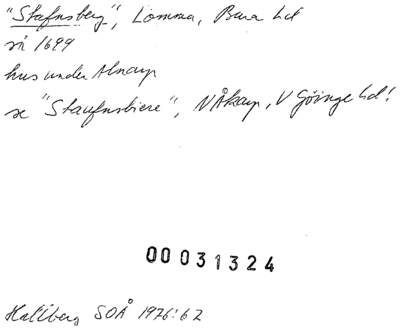 "Stafnsberg", Lomma, Bara hd
sn 1699
hus under Alnarp
se "Staufnsbiere", N Åkarp, V Göinge hd!
00031324
Hallberg SOÅ 1976:62